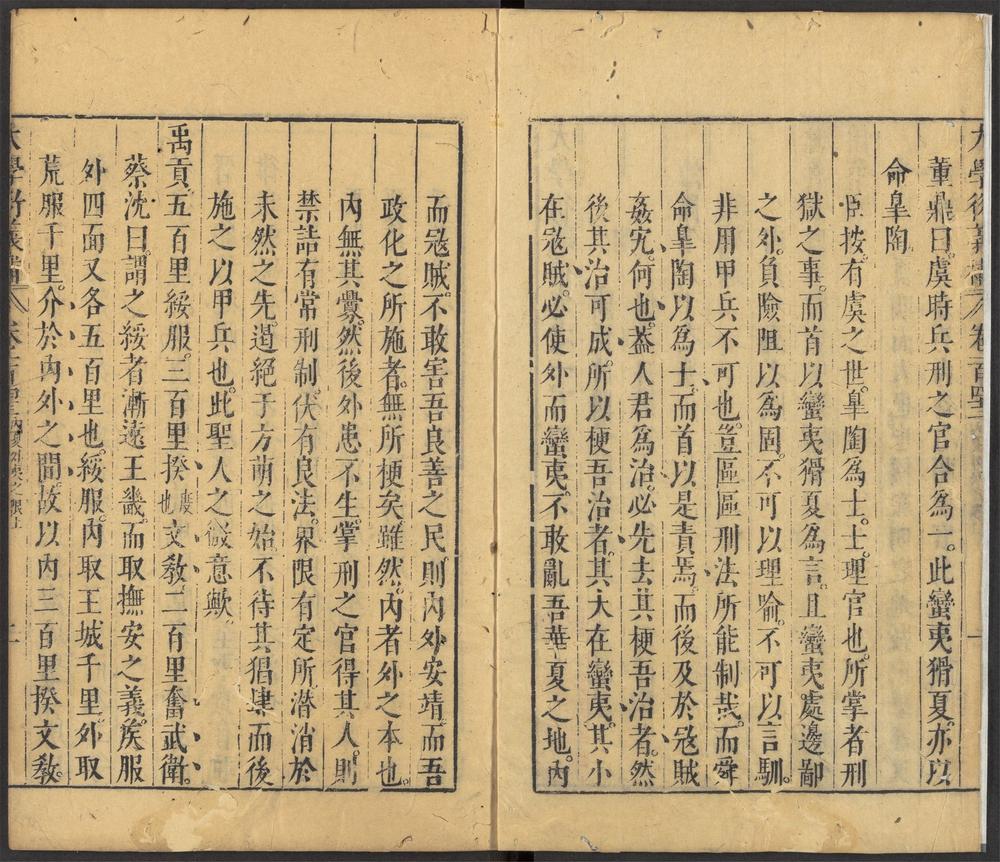 董鼎曰。虞時兵刑之官合為一。此蠻夷猾夏。亦以
命皐陶
臣按。有虞之世。皐陶為士。士。理官也。所掌者刑
獄之事。而首以蠻夷猾夏為言。且蠻夷處邊鄙
之外。負險阻以為固。不可以理喻。不可以言馴。
非用甲兵不可也。豈區區刑法所能制哉。而舜
命皐陶以為士。而首以是責焉。而後及於冦賊
姦宄。何也。葢人君為治。必先去其梗吾治者。然
後其治可成。所以梗吾治者。其大在蠻夷。其小
在冦賊。必使外而蠻夷。不敢亂吾華夏之地。内
而冦賊。不敢害吾良善之民。則内外安靖。而吾
政化之所施者。無所梗矣。雖然。内者外之本也。
内無其釁。然後外患不生。掌刑之官得其人。則
禁詰有常刑。制伏有良法。界限有定所。潜消於
未然之先。遏絕于方萌之始。不待其猖肆而後
施之以甲兵也。此聖人之微意歟。
禹貢五百里綏服。三百里揆度也文敎。二百里奮武衛。
蔡沈曰。謂之綏者。漸遠王畿。而取撫安之義。矦服
外四面又各五百里也。綏服。内取王城千里。外取
荒服千里。介於内外之間。故以内三百里揆文敎。